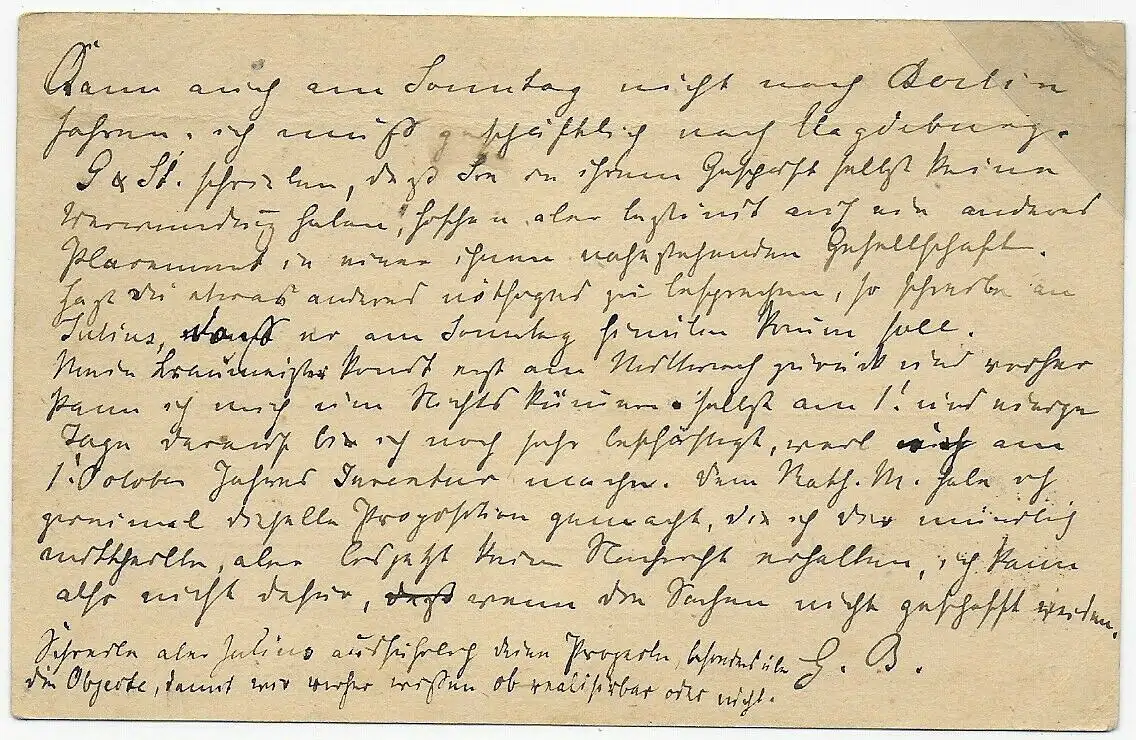 Kann auch am Sonntag nicht nach Berlin
fahren, ich muß geschäftlich nach Magdeburg.
G & St. schreiben, daß Sie in ihrem Geschäft selbst keine
Verwendung haben, hoffen aber bestimmt auf ein anderes
Placement in einer ihnen nahestehenden Gesellschaft.
Hast du etwas anderes nöthiges zu besprechen, so schreibe an
Julius, daß er am Sonntag hinüber kommen soll.
Mein Braumeister kommt erst am Mittwoch zurück und vorher
kann ich mich um Nichts kümmern. selbst am 1! und einige
Tage darauf bin ich noch sehr beschäftigt, weil ich am
1! October Jahres Inventur mache. Dem Rath. M. habe ich
zweimal dieselbe Proposition gemacht, die ich dir mündlich
mittheilte, aber bis jetzt keine Nachricht erhalten, ich kann
also nicht dafür, daß wenn die Sachen nicht geschafft werden.
Schreibe aber Julius ausführlich deine Projecte, besonders über
die Objecte, damit wir vorher wissen ob realisirbar oder nicht.
G. B.